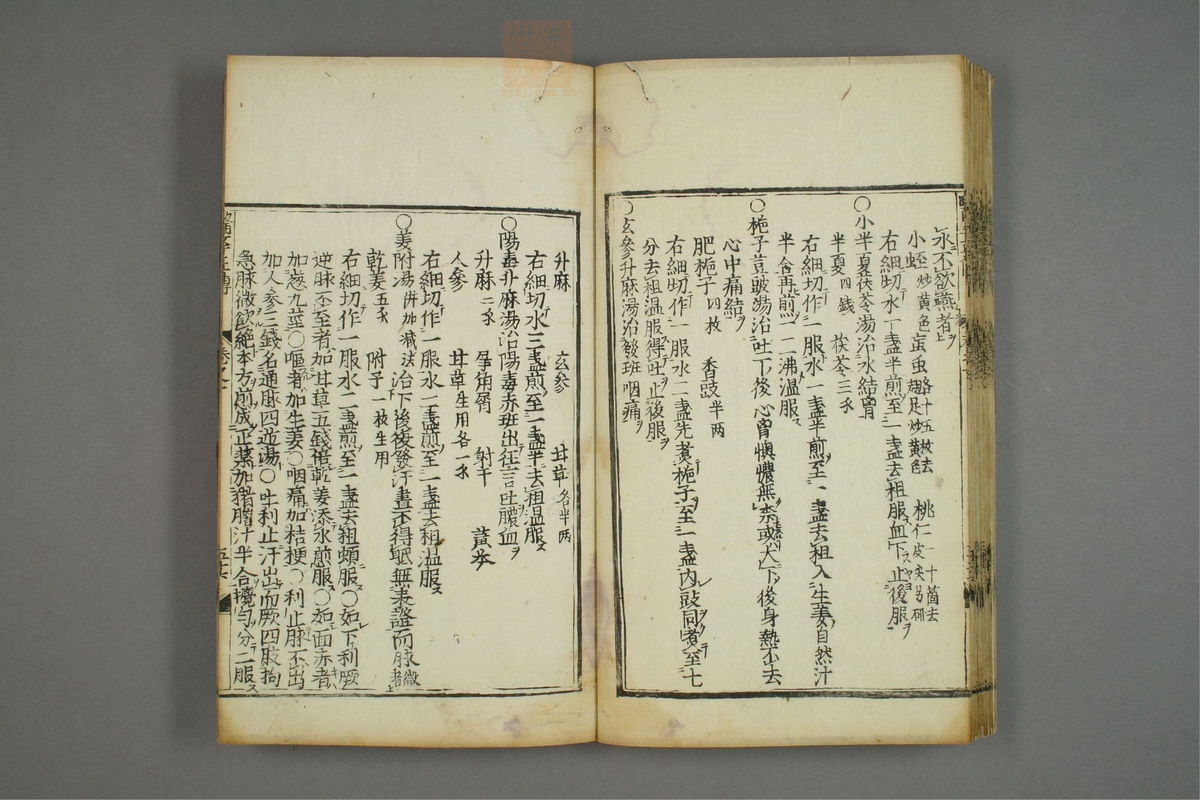 水不欲嚥者
水蛭炒黄色 䖟虫略十五枚去翅足炒黄色 桃仁一十箇去皮尖另研
右細切水一盞半煎至一盞去柤服血下止後服
〇小半夏茯苓湯治水結胷
半夏四錢 茯苓三戔
右細切作一服水一盞半煎至一盞去柤入生姜自然汁
半合再煎一二沸温服
〇梔子荳豉湯治吐下後心胷懊憹無柰或大下後身熱不去
心中痛結
肥梔子四枚 香豉半两
右細切作一服水二盞先煮梔子至一盞内豉同煮至七
分去柤温服得吐止後服
〇玄參升麻湯治發班咽痛
升麻 玄參 甘草各半两
右細切水三盞煎至一盞半去柤温服
〇陽毒升麻湯治陽毒赤班出狂言吐膿血
升麻二戔 犀角屑 射干 黄芩
人參 甘草生用各一戔
右細切作一服水一盞煎至一盞去柤温服
〇姜附湯併加减法治下後復發汗晝不得眠無表證而脉微者
乾姜五戔 附子一枚生用
右細切作一服水二盞煎至一盞去柤頓服〇如下利厥
逆脉不至者加甘草五錢倍乾姜添水煎服〇如面赤者
加葱九莖〇嘔者加生姜〇咽痛加桔梗〇利止脉不出
加人參三錢名通脉四逆湯〇吐利止汗出而厥四肢拘
急脉微欲絶本方煎成正藥加猪膽汁半合攪匀分二服